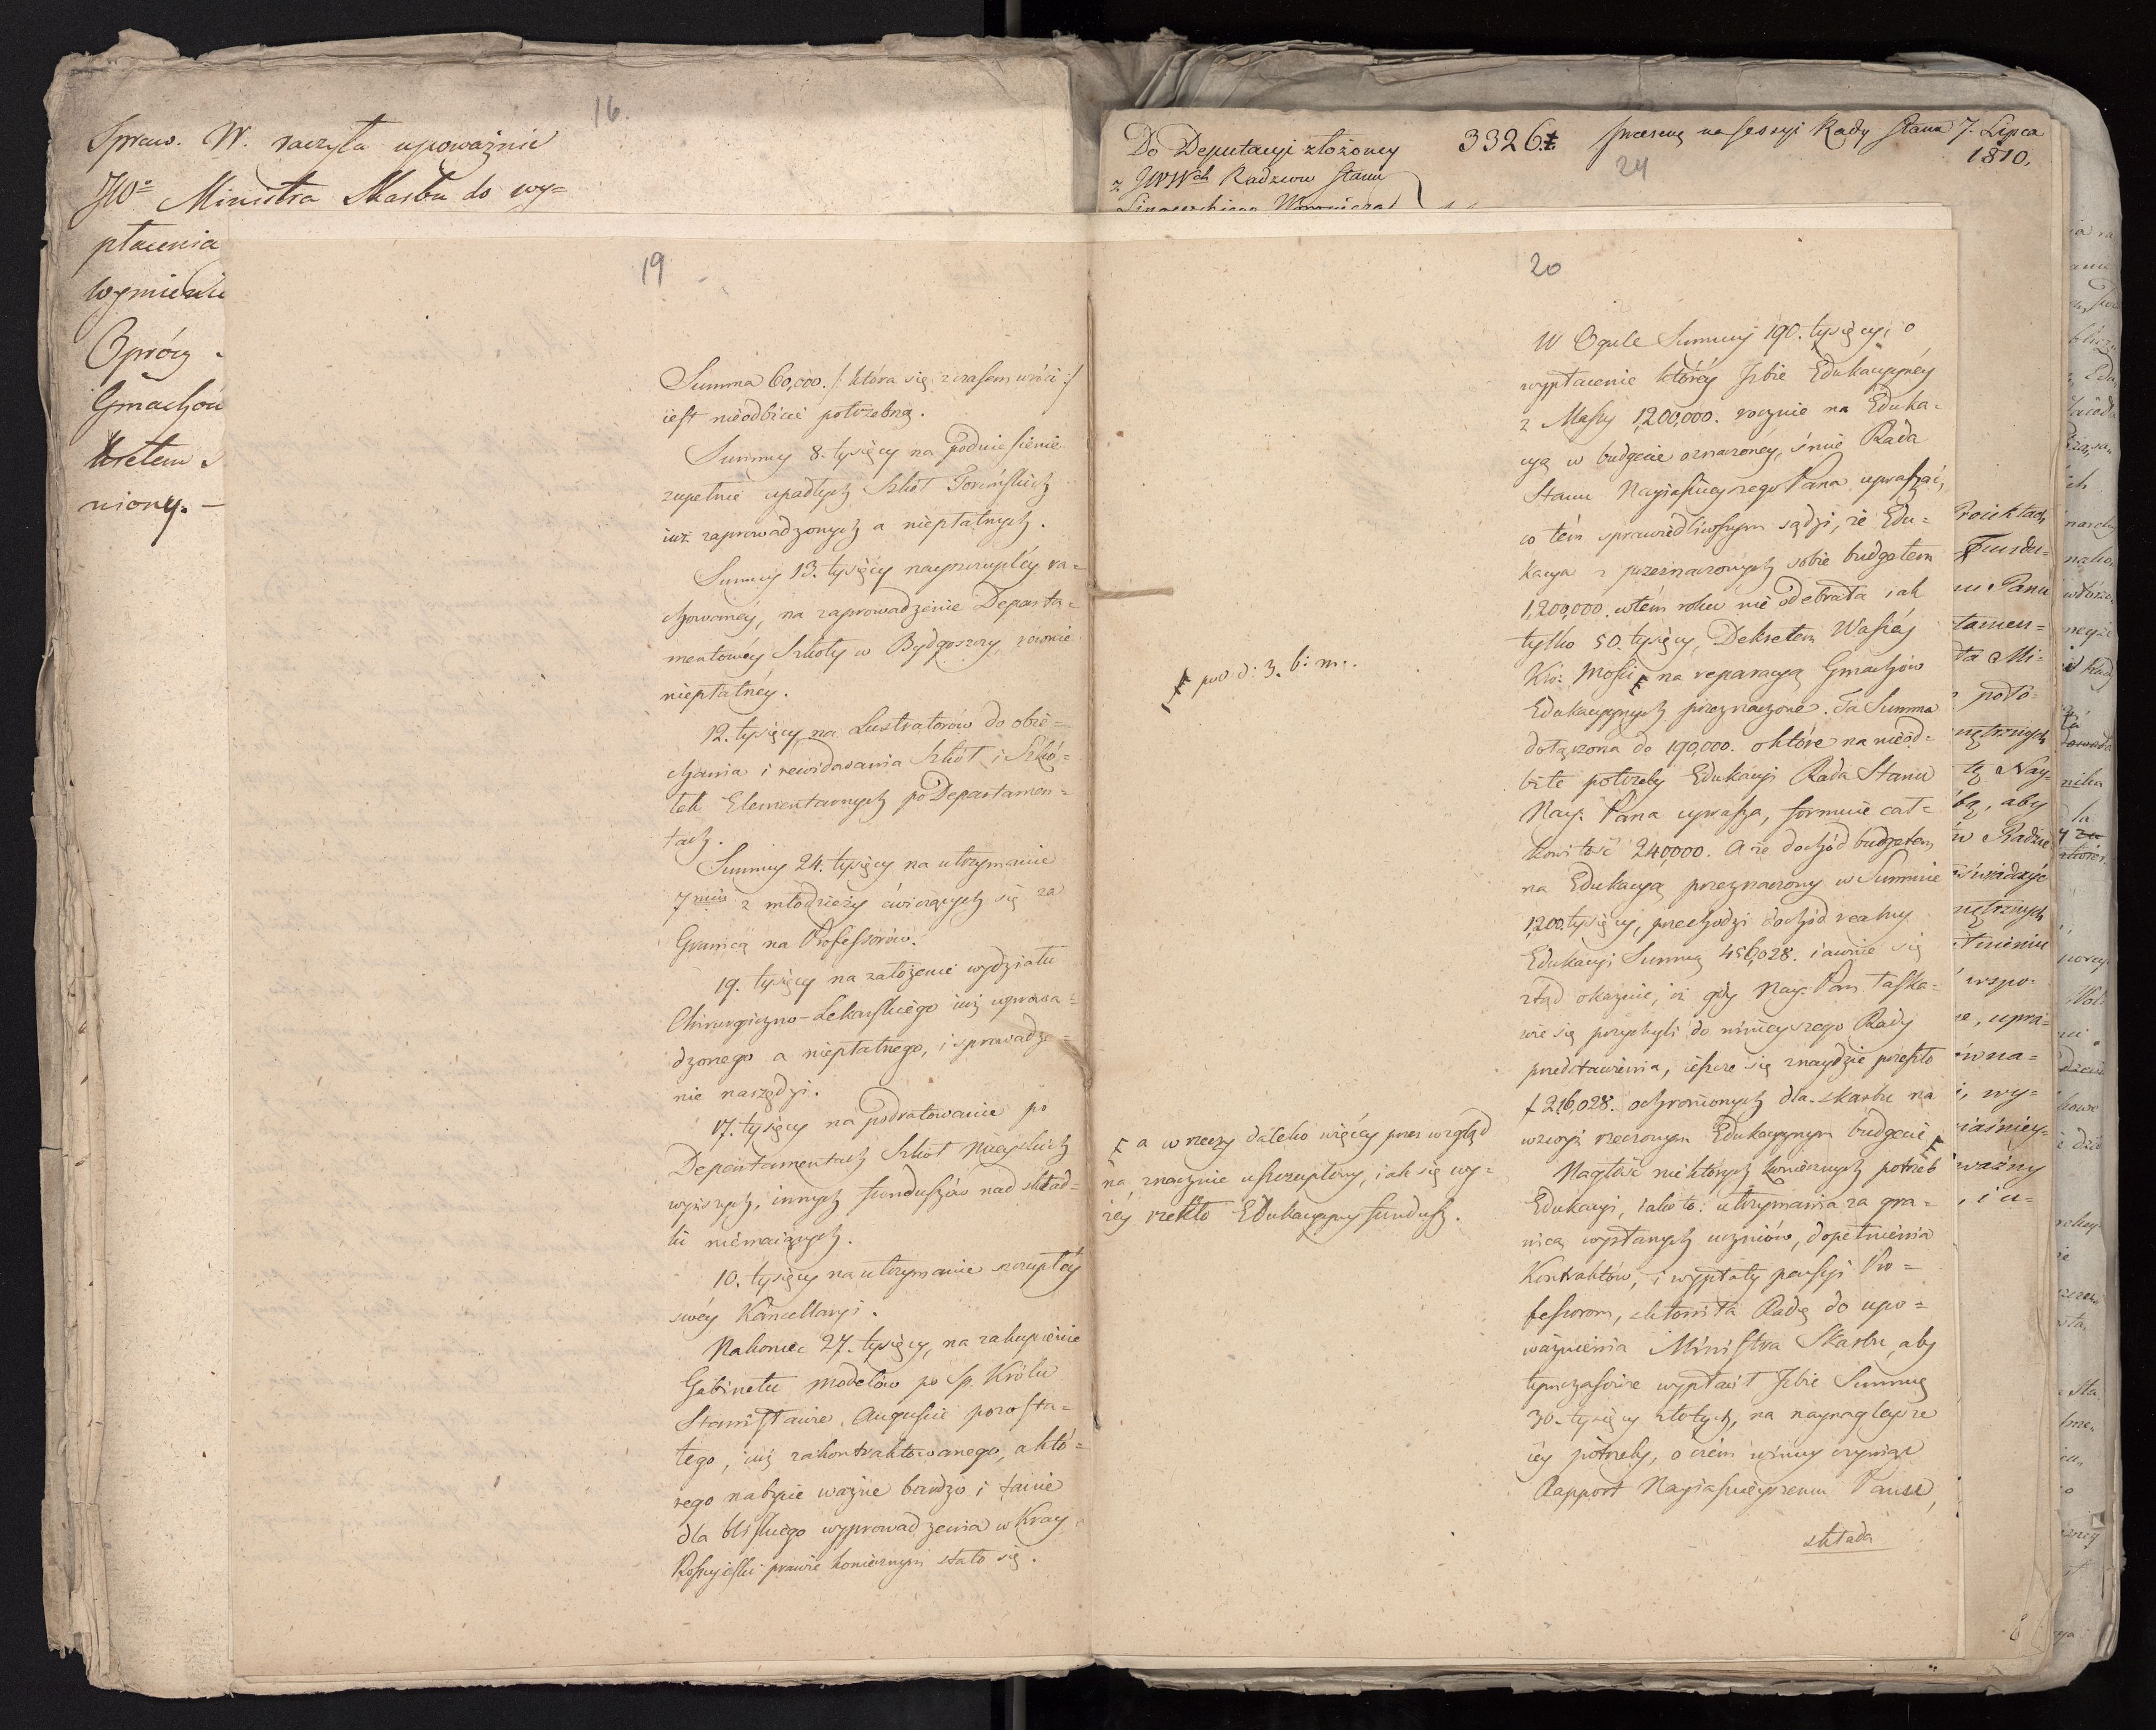 16.
Spraw. W. raczyła upoważnić
JWo Ministra Skarbu do wy=
płacenia
wymieni
Oprócz
Gmachów
kretem
niony. —
19
Summa 60,000. /: która się z czasem wróci :/
iest nieodbicie potrzebną.
Summy 8. tysięcy na podniesienie
zupełnie upadłych Szkół Toruńskich
iuż zaprowadzonych a niepłatnych.
Summy 13. tysięcy nayszczupléy ra=
chowanéy, na zaprowadzenie Departa=
mentowéy Szkoły w Bydgoszczy, równie
niepłatnéy.
12. tysięcy na Lustratorów do obie=
chania i rewidowania Szkół i Szkó=
łek Elementarnych po Departamen=
tach.
Summy 24. tysięcy na utrzymanie
7miu z młodzieży ćwiczących się za
Granicą na Professorów.
19. tysięcy na założenie wydziału
Chirurgiczno-Lekarskiego iuż uprowa=
dzonego a niepłatnego, i sprowadze=
nie narzędzi.
17. tysięcy na podratowanie po
Departamentach Szkół Mieyskich
wyższych, innych funduszów nad skład=
ki niemaiących.
10. tysięcy na utrzymanie szczupłey
swéy Kancellaryi.
Nakoniec 27. tysięcy, na zakupienie
Gabinetu modelów po Sp. Królu
Stanisławie Auguscie pozosta=
łego, iuż zakontraktowanego, a któ=
rego nabycie ważne bardzo i tanie
dla bliskiego wyprowadzenia w Kray
Rossyiski prawie koniecznym stało się.
Do Deputacyi złożoney
z JWWch Radzców Stanu
3326.
24
na Sessyi Rady Stanu 7. Lipca
1810.
20
W Ogule Summy 190. tysięcy, o
wypłacenie któréy Izbie Edukacyynéy
z Massy 1,200,000. rocznie na Eduka=
cyą w budgecie oznaczoney, śmie Rada
Stanu Nayiaśnieyszego Pana upraszać,
co tém sprawiedliwszym sądzi, że Edu=
kacya z przeznaczonych sobie budgetem
1,200,000. w tém roku nie odebrała iak
tylko 50. tysięcy, Dekretem Waszéj
Kró: Mości na reparacyą Gmachów
Edukacyynych przeznaczone. Ta Summa
dołączona do 190,000. o które na nieod=
bite potrzeby Edukacyi Rada Stanu
Nay: Pana uprasza, formuie cał=
kowitość 240000. A że dochód budgetem
na Edukacyą przeznaczony w Summie
1,200. tysięcy, przechodzi dochód realny
Edukacyi Summą 456,028. iawnie się
ztąd okazuie, iż gdy Nay: Pan łaska=
wie się przychyli do ninieyszego Rady
przedstawienia, ieszcze się znaydzie przeszło
f 216,028. ochronionych dla skarbu na
wzwyż rzeczonym Edukacyynym budgecie
Nagłość niektórych koniecznych potrzeb
Edukacyi, iako to: utrzymania za gra=
nicą wysłanych uczniów, dopełnienia
Kontraktów, i wypłaty pensyi Pro=
fessorom, skłoniła Radę do upo=
ważnienia Ministra Skarbu, aby
tymczasowie wypłacił Izbie Summę
30. tysięcy złotych, na naynagleysze
iéy potrzeby, o czém winny czyniąc
Rapport Nayiaśnieyszemu Panu,
składa
pod d: 3. b: m:.
a w rzeczy daleko więcéy przez wzgląd
na znacznie uszczuplony, iak się wy=
żéy rzekło Edukacyyny fundusz.